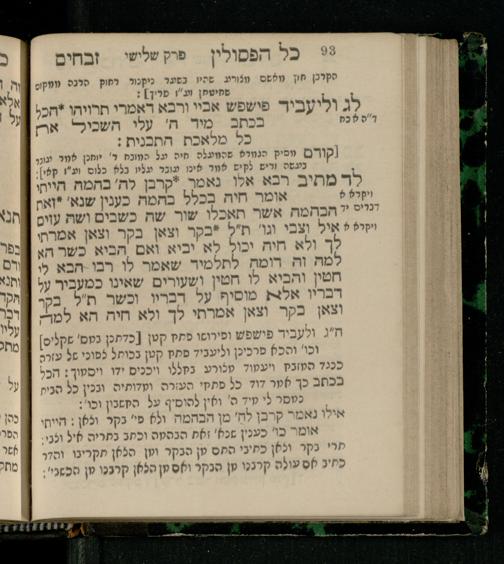 כל הפסולין פרק שלישי זבחים 93
הקרבן חוץ מאשם מצורע שהיו בשער ניקנור רחוק הרבה ממקום
שחיטתן וע"ז פריך]:
לג וליעביד פישפש אביי ורבא דאמרי תרויהו *הכל
בכתב מיד ה' עלי השכיל את
כל מלאכת התבנית:
ד"ה א כח
[קודם מסיק הגמרא שהמעלה חיה על המזבח ר' יוחנן אמר עובר
בעשה וריש לקיש אמר אינו עובר עליו בלא כלום וע"ז קאי]:
לד מתיב רבא אלו נאמר *קרבן לה' בהמה הייתי
אומר חיה בכלל בהמה כענין שנא' *זאת
הבהמה אשר תאכלו שור שה כשבים ושה עזים
איל וצבי וגו' ת"ל *בקר וצאן בקר וצאן אמרתי
ויקרא א
דברים יד
ויקרא א
לך ולא חיה יכול לא יביא ואם הביא כשר הא
למה זה דומה לתלמיד שאמר לו רבו הבא לי
חטין והביא לו חטין ושעורים שאינו כמעביר על
דבריו אלא מוסיף על דבריו וכשר ת"ל בקר
וצאן בקר וצאן אמרתי לך ולא חיה הא למה
ח"ג ולעביד פישפש ופירושו פתח קטן [כדתנן במס' שקלים]
וכו' והכא פרכינן וליעביד פתח קטן בכותל לפוני של עזרה
כנגד המזבח ויעמוד מצורע בחללו ויכניס ידו ויסמוך: הכל
בכתב כך אמר דוד כל פתחי העזרה ומדותיה ובנין כל הבית
נמסר לי מיד ה' ואין להוסיף על החשבון וכו':
אילו נאמר קרבן לה' מן הבהמה ולא פי' בקר ולאן: הייתי
אומר כו' כענין שנא' זאת הבהמה וכתב בתריה איל ולבי:
תרי בקר ולאן כתיבי התם מן הבקר ומן הלאן תקריבו והדר
כתיב אם עולה קרבנו מן הבקר ואם מן הלאן קרבנו מן הכשבי':